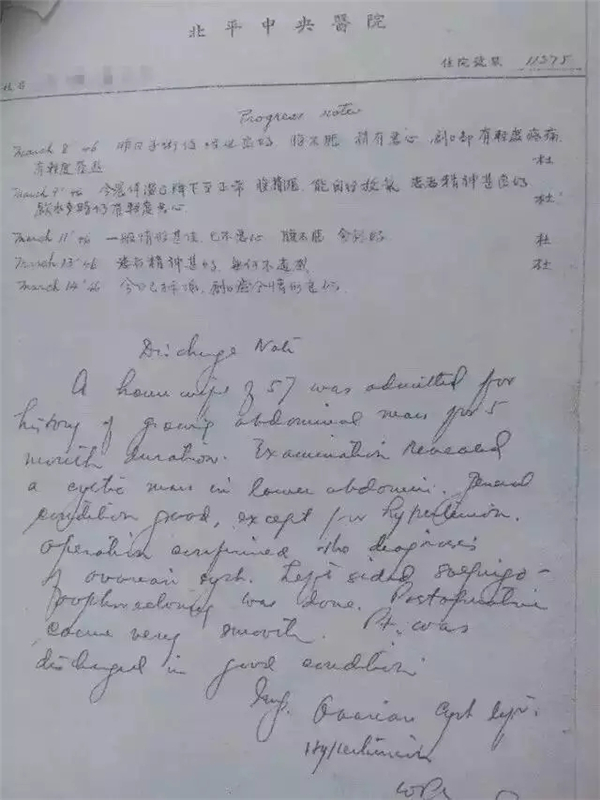 北平中央醫院
住院號數 11375
Progress notes
March 8 '46 昨日手術後情況良好. 腹不脹 稍有惡心, 創口部有輕度疼痛,
杜
今晨体溫已降下至正常 腹稍脹, 能自行放氣 患者精神甚良好
飲水多時仍有輕度惡心. 杜
March 11 '46 一般情形甚佳, 已不惡心 腹不脹 杜
March 13 '46 患者精神甚好, 無何不適感 杜
March 14 '46 今日已拆線, 創口癒合情形良好.
Discharge Note
A housewife of 57 was admitted for
history of growing abdominal mass for 5
month duration. Examination revealed
a cystic mass in lower abdomen. General
condition good, except for hypertension.
Operation confirmed the diagnosis
of ovarian cyst. Left sided salpingo-
oophorectomy was done. Postoperative
course very smooth. Pt. was
discharged in good condition
Ovarian cyst left.
Hypertension